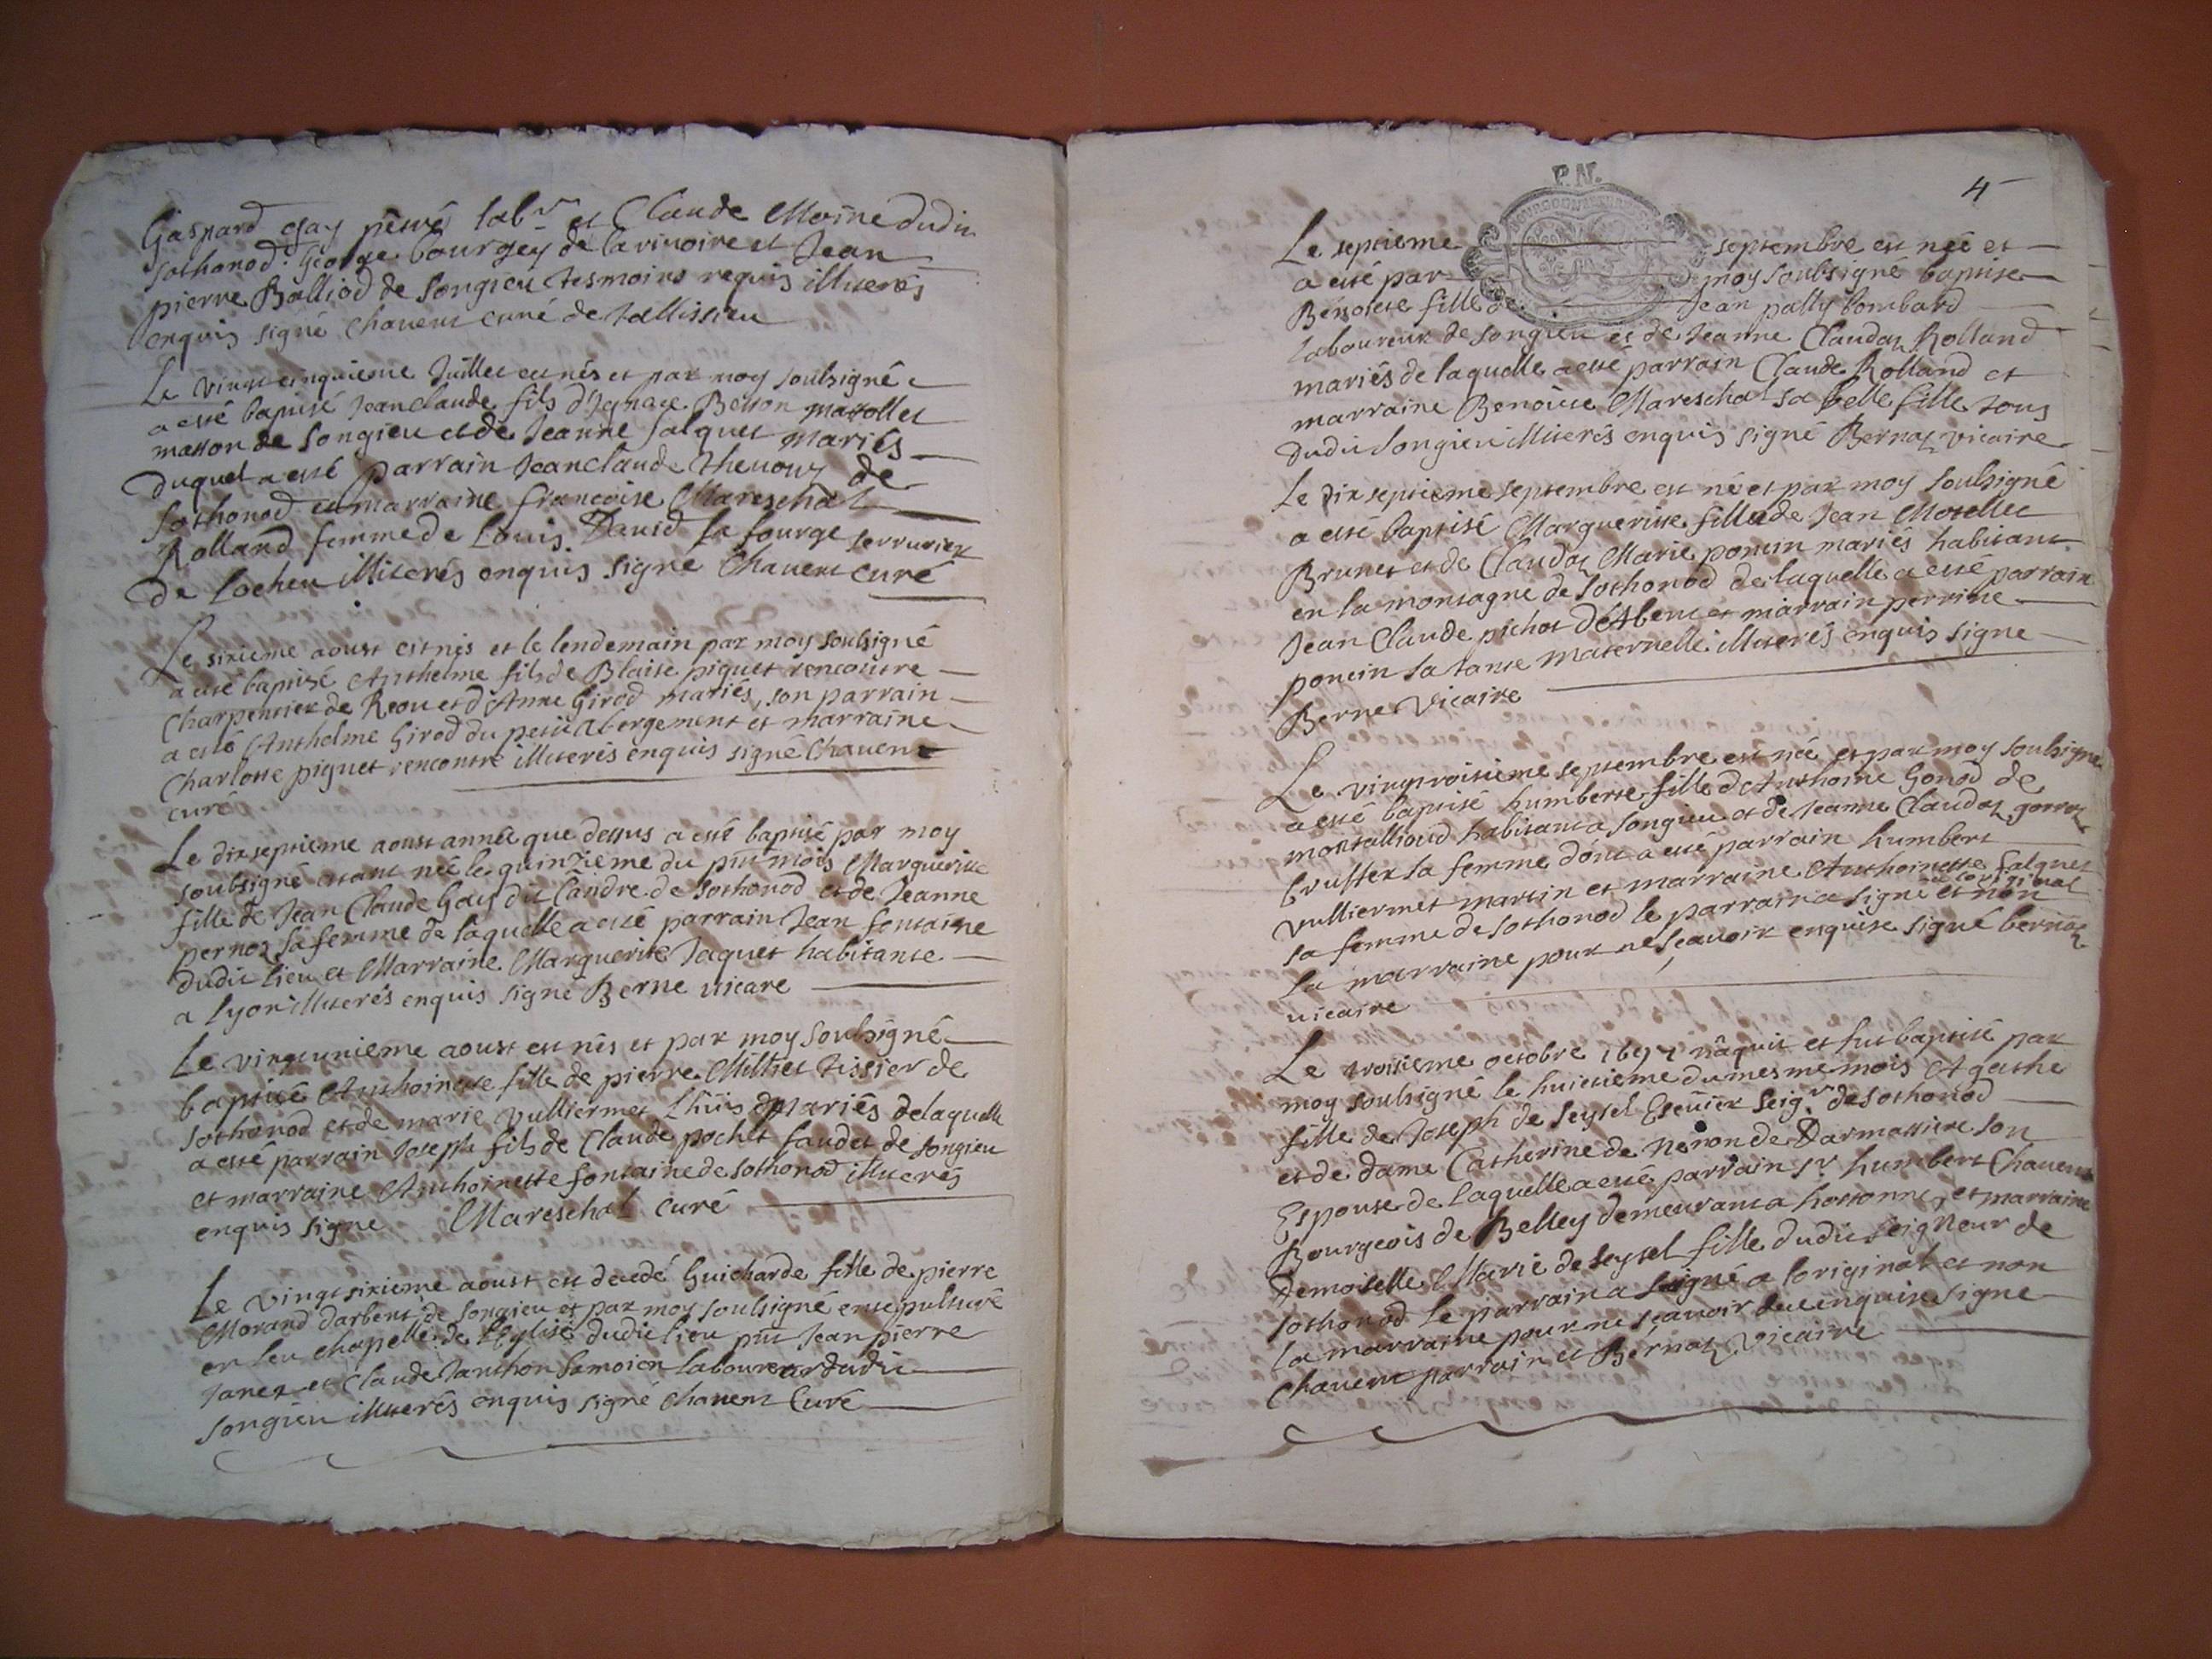 Gaspard Gay peuvé labr et Claude Moine dudit
Sothonod George bourgey de la rivoire et Jean
pierre Balliod de Songieu tesmoins requis illiterés
enquis signé Chavent curé de tallissieu
Le vingt cinquieme Juillet est nés et par moy soubsigné
a esté baptisé Jeanclaude fils d'Ignace Besson
masson de Songieu et de Jeanne Jalquet mariés
duquel a esté parrain Jeanclaude thevony de
Sothonod et marraine francoise Mareschal
Rolland femme de Louis David la fourge serrurier
de Locheu illiterés enquis signe Chavent curé
Le sixieme aoust est nés et le lendemain par moy soubsigné
a esté baptisé Anthelme fils de Blaise piquet rencontre
Charpentier de Reou et d'Anne Girod mariés, son parrain
a esté Anthelme Girod du petit abergement et marraine
Charlotte piquet rencontre illiterés enquis signé Chavent
curé
Le dix septieme aoust année que dessus a esté baptisé par moy
soubsigné estant née le quinzieme du pnt mois Marguerite
fille de Jean Claude Gay dit Landre de Sothonod et de Jeanne
pernoz sa femme de laquelle a esté parrain Jean fontaine
dudit lieu et Marraine Marguerite Jaquet habitante
a lyon illiterés enquis signe Berne vicare
Le vingt unieme aoust est nés et par moy soubsigné
baptisé Anthoinette fille de pierre Milliet tissier de
Sothonod et de marie vulliermet Lhuis mariés de laquelle
a esté parrain Joseph fils de Claude pochet faudet de Songieu
et marraine Anthoinette fontaine de Sothonod illiterés
enquis signe Mareschal curé
Le vingt sixieme aoust est decedé Guicharde fille de pierre
Morand darbent de Songieu et par moy soubsigné ensepulturé
en leu chapelle de l'Eglise dudit lieu pnt Jean pierre
Janet et Claude Janthon Samoien laboureur dudit
Songieu illiterés enquis signé Chavent Curé
P.N.
4
Le septieme septembre est née et
a esté par moy soubsigné baptisé
Benoite fille de Jean pally bombard
laboureur de Songieu et de Jeanne Claudaz Rolland
mariés de laquelle a esté parrain Claude Rolland et
marraine Benoite Mareschal sa belle fille tous
dudit Songieu illiterés enquis signé Bernaz vicaire
Le dix septieme septembre est né et par moy soubsigné
a esté baptisé Marguerite fille de Jean Motellet
Brunet et de Claudaz Marie poncin mariés habitant
en la montagne de Sothonod de laquelle a esté parrain
Jean Claude pichot d'Abent et marrain perrine
poncin sa tante maternelle illiterés enquis signe
Berne vicaire
Le vingtroisieme septembre est née et par moy soubsigné
a esté baptisé humberte fille d'Anthoine Gonod de
montallioud habitant a Songieu et de Jeanne Claudaz gorraz
sa femme dont a esté parrain humbert
vulliermet martin et marraine Anthoinette Jalquet
sa femme de Sothonod le parrain a signé a l'original et non
la marraine pour ne sçavoir enquise signé bernaz
vicaire
Le troisieme octobre 1691 nâquit et fut baptisé par
moy soubsigné le huictieme du mesme mois Agathe
fille de Joseph de Seyssel Escuier Seigr de Sothonod
et de dame Catherine de Neron de Darmassiere son
Espouse de laquelle a esté parrain sr humbert Chavent
Bourgeois de Belley demeurant a hottonne, et marraine
Demoiselle Marie de Seyssel fille dudit seigneur de
Sothonod le parrain a signé a loriginal et non
la marraine pour ne sçavoir de ce enquise signe
Chavent parrain et Bernaz vicaire